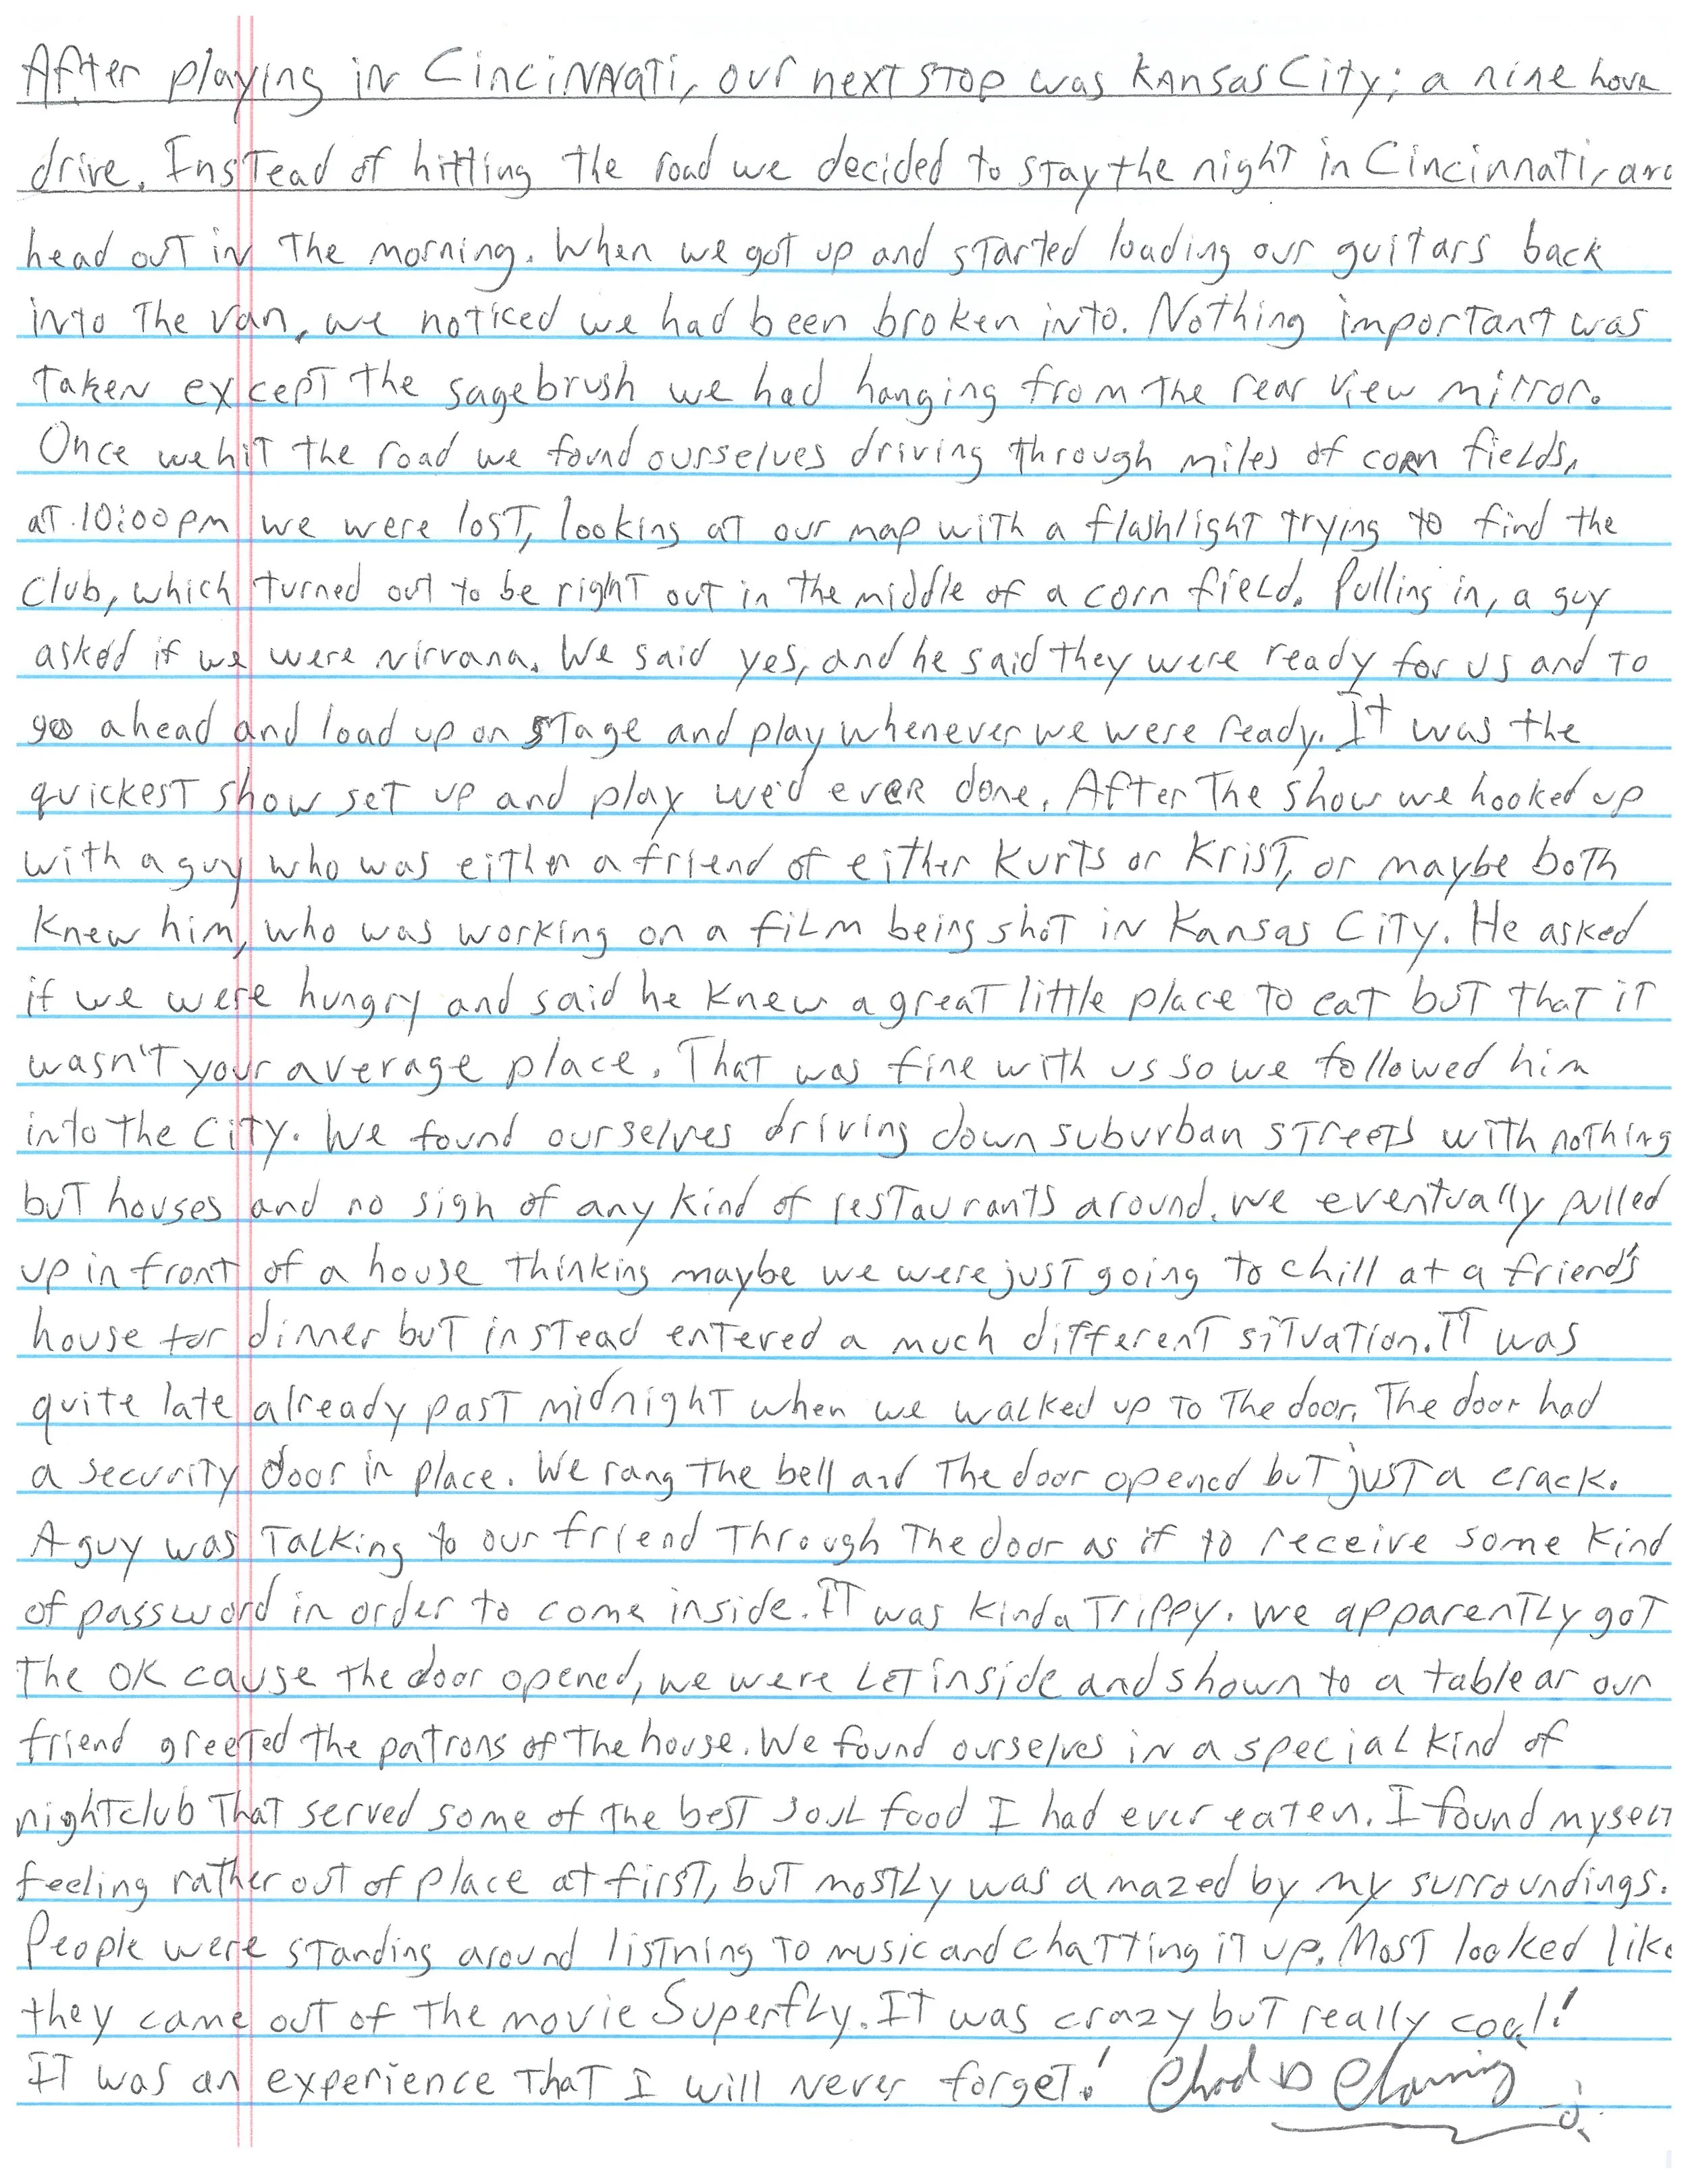 After playing in Cincinnati, our next stop was Kansas City; a nine hour
drive. Instead of hitting the road we decided to stay the night in Cincinnati, and
head out in the morning. When we got up and started loading our guitars back
into the van, we noticed we had been broken into. Nothing important was
taken except the sagebrush we had hanging from the rear view mirror.
Once we hit the road we found ourselves driving through miles of corn fields,
at 10:00 pm we were lost, looking at our map with a flashlight trying to find the
club, which turned out to be right out in the middle of a corn field. Pulling in, a guy
asked if we were Nirvana. We said yes, and he said they were ready for us and to
go ahead and load up on stage and play whenever we were ready. It was the
quickest show set up and play we'd ever done. After the show we hooked up
with a guy who was either a friend of either Kurts or Krist, or maybe both
knew him, who was working on a film being shot in Kansas City. He asked
if we were hungry and said he knew a great little place to eat but that it
wasn't your average place. That was fine with us so we followed him
into the city. We found ourselves driving down suburban streets with nothing
but houses and no sign of any kind of restaurants around. We eventually pulled
up in front of a house thinking maybe we were just going to chill at a friend's
house for dinner but instead entered a much different situation. It was
quite late already past midnight when we walked up to the door. The door had
a security door in place. We rang the bell and the door opened but just a crack.
A guy was talking to our friend through the door as if to receive some kind
of password in order to come inside. It was kinda trippy. We apparently got
the OK cause the door opened, we were let inside and shown to a table as our
friend greeted the patrons of the house. We found ourselves in a special kind of
nightclub that served some of the best soul food I had ever eaten. I found myself
feeling rather out of place at first, but mostly was amazed by my surroundings.
People were standing around listning to music and chatting it up. Most looked like
they came out of the movie Superfly. It was crazy but really cool!
It was an experience that I will never forget! Chad D Channing